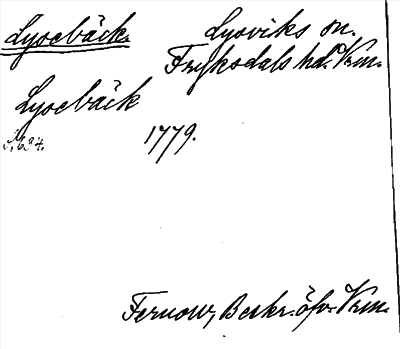 Lysebäck. Lysviks sn.
Fryksdals hd. Vrm.
Lysebäck
s. 634. 1779.
Fernow, Beskr. öfv. Vrm.